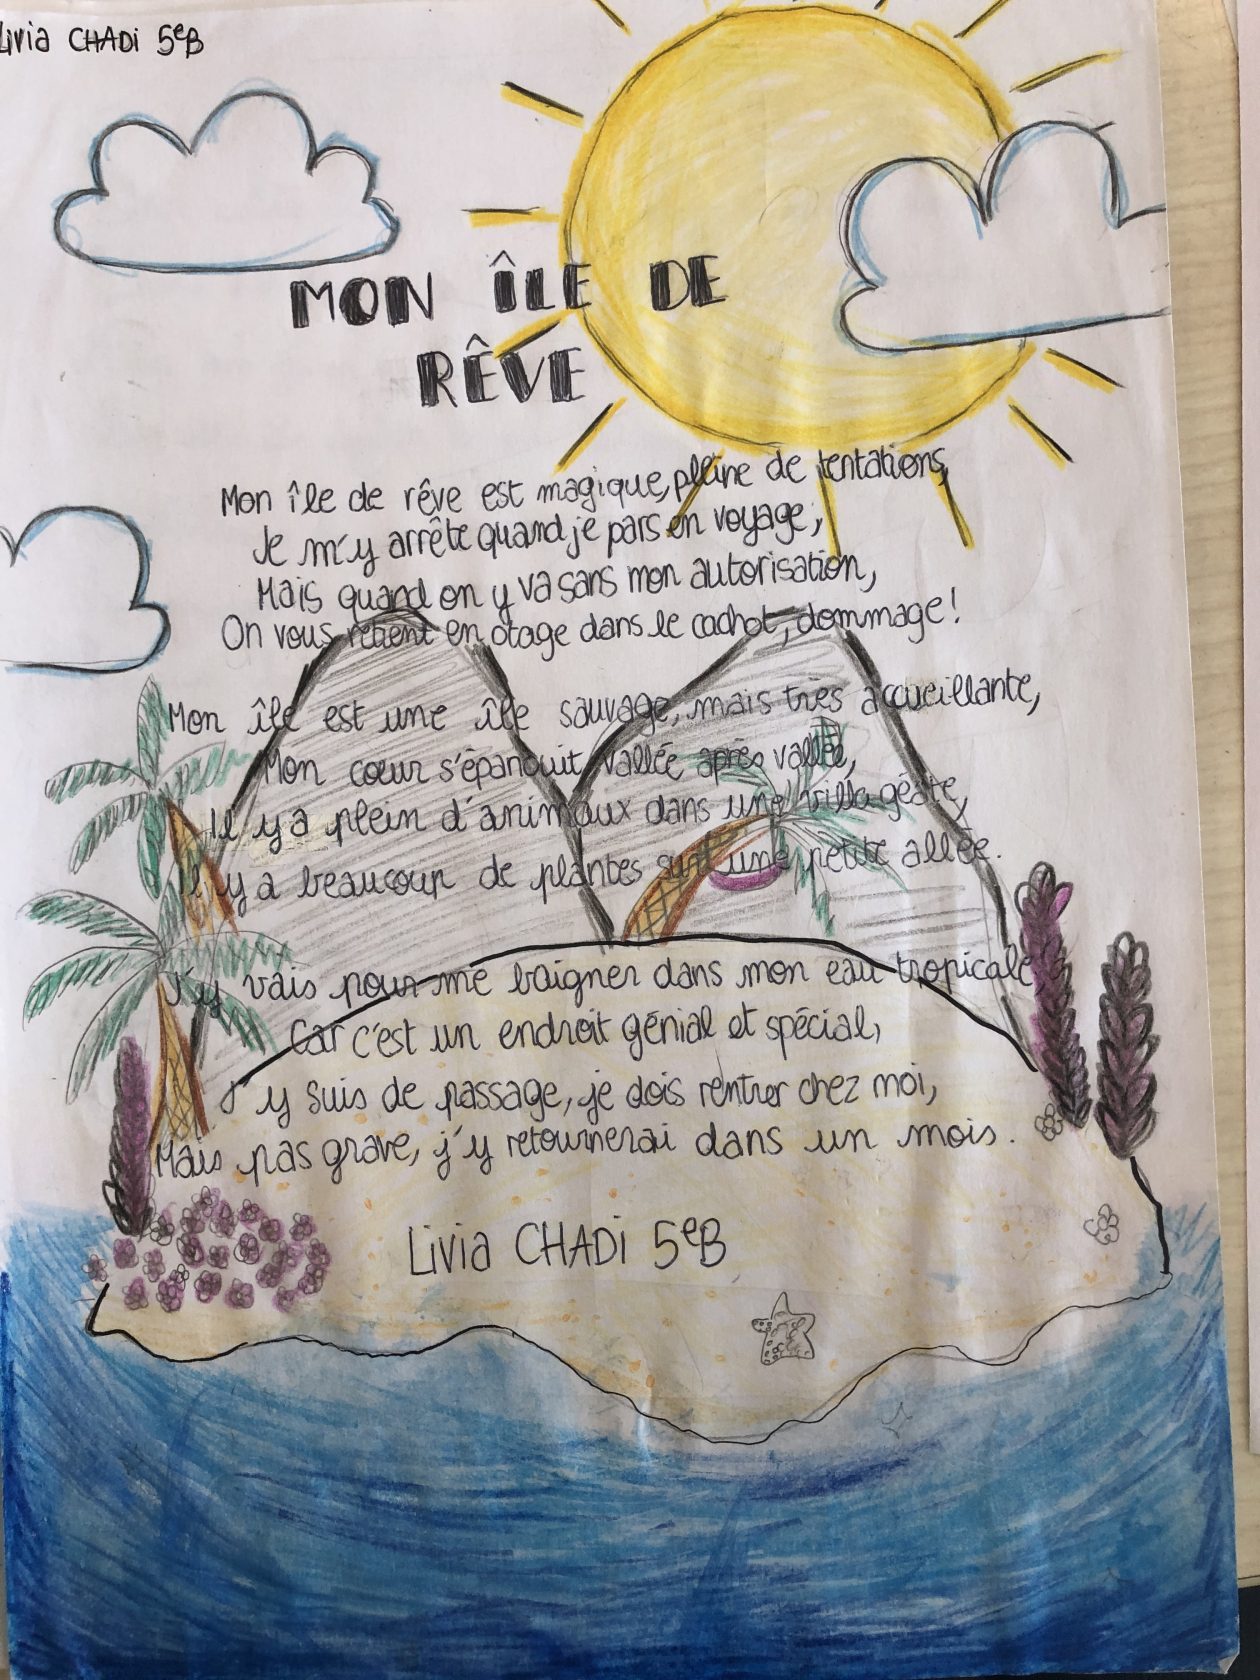 Livia CHADi 5eB
MON ÎLE DE
RÊVE
Mon île de rêve est magique, pleine de tentations,
Je m'y arrête quand je pars en voyage,
Mais quand on y va sans mon autorisation,
On vous retient en otage dans le cachot, dommage!
Mon île est une île sauvage, mais très accueillante,
Mon cœur s'épanouit vallée après vallée,
Il y a plein d'animaux dans une villa géante,
Il y a beaucoup de plantes sur une petite allée.
J'y vais pour me baigner dans mon eau tropicale
Car c'est un endroit génial et spécial,
J'y suis de passage, je dois rentrer chez moi,
Mais pas grave, j'y retournerai dans un mois.
Livia CHADi 5eB